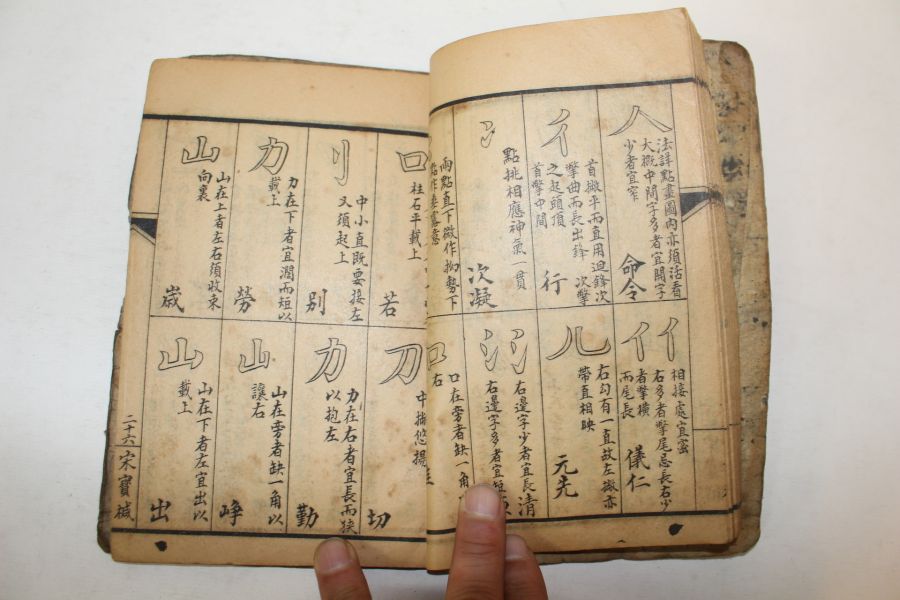 人
法詳點畫圖內亦須活看
大概中間字多者宜開字
少者宜窄
命令
彳
首撇平而直用迴鋒次
撆曲而長出鋒 次撆
之起頭頂
首撆中間
行
冫
點挑相應神氣一貫
次凝
兩點直下微作拗勢下
亻
相接處宜密
右多者撆尾忌長右少
者撆橫
而尾長
儀仁
儿
右勾有一直故左撇亦
帶直相映
元先
氵
右邊字少者宜長
清
右邊字多者宜短
口
口在旁者缺一角
右
口
柱石平載上
若
刂
中小直既要接左
又須起上
別
力
力在下者宜濶而短以
載上
勞
山
山在上者左右須收束
向裏
嵗
刀
中撇悠揚
切
力
力在右者宜長而狹
以抱左
勤
山
山在旁者缺一角以
讓右
崢
山
山在下者左宜出以
載上
出
二十六
宋寳椷